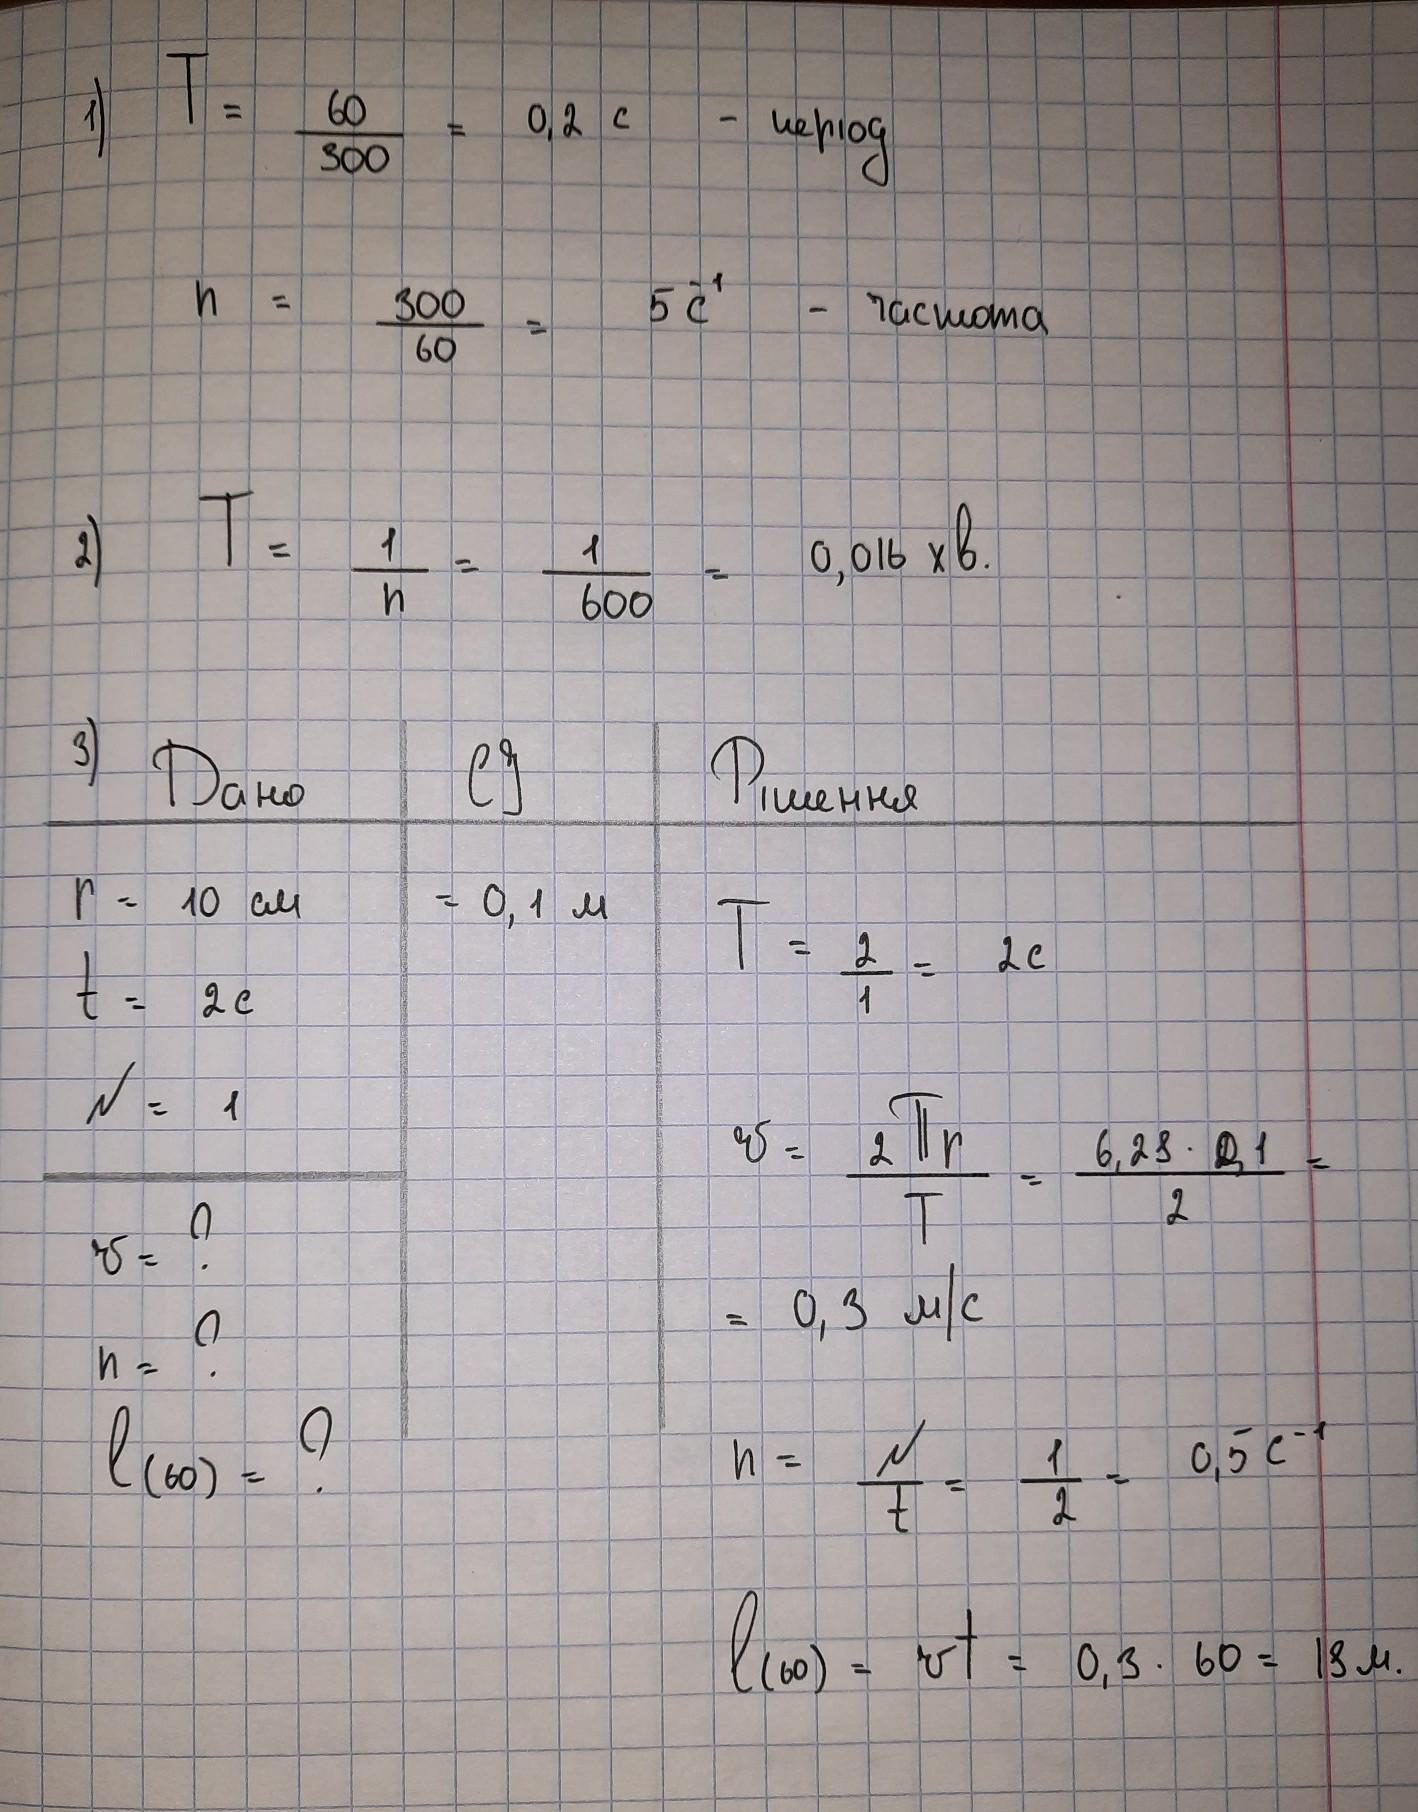 1) T = 60/300 = 0,2 с - період
n = 300/60 = 5 с⁻¹ - частота
2) T = 1/n = 1/600 = 0,016 хв.
3) Дано СІ Рішення
r = 10 см = 0,1 м T = 2/1 = 2с
t = 2с
N = 1 v = 2πr/T = 6,28 · 0,1/2 =
v = ? = 0,3 м/с
n = ?
l(60) = ? n = N/t = 1/2 = 0,5 с⁻¹
l(60) = vt = 0,3 · 60 = 18 м.